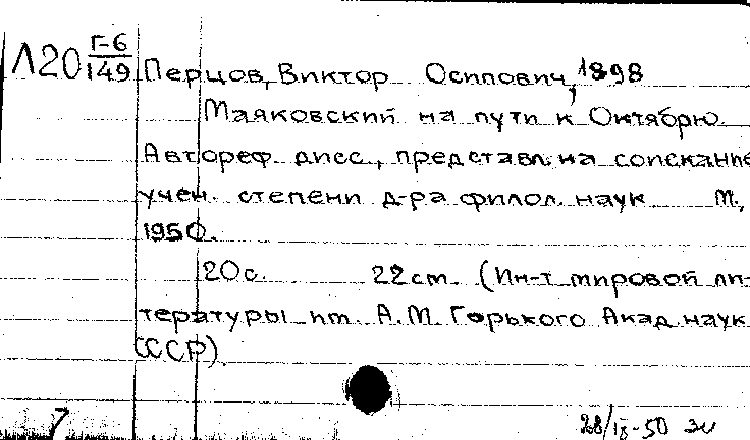 Л20 Г-6/149 Перцов, Виктор Осипович, 1898
Маяковский на пути к Октябрю.
Автореф. дисс., представл. на соискание
учен. степени д-ра филол. наук М.,
1950.
20 с. 22 см. (Ин-т мировой ли-
тературы им. А.М. Горького Акад. наук
СССР).
28/IX-50